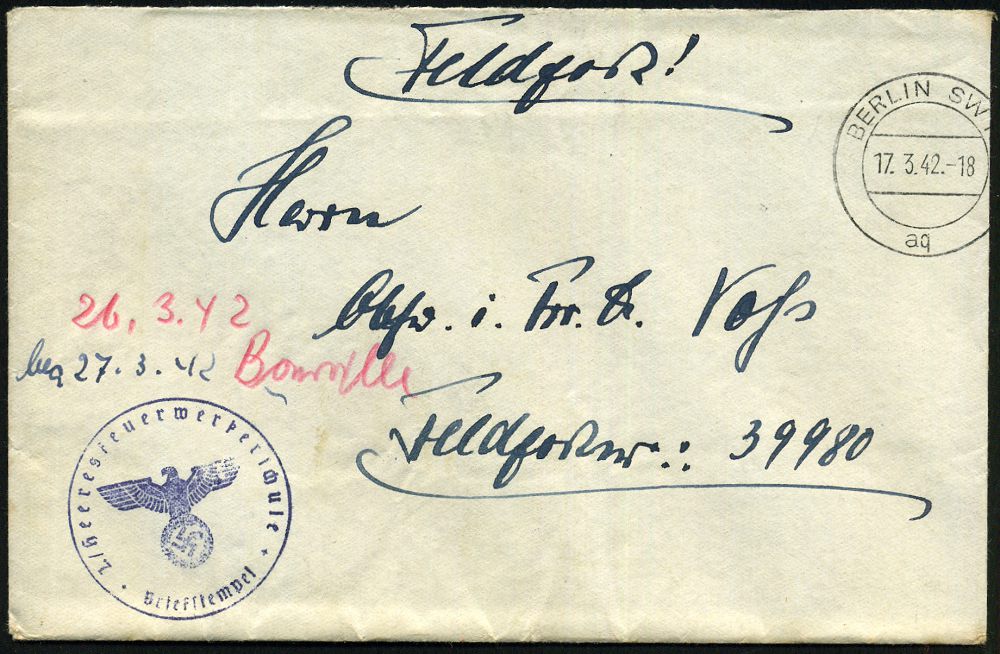 Feldpost!
BERLIN SW
17. 3.42.-18
aq
Herrn
Obfw. i. Fw. D. Voß
26. 3. 42
27. 3. 42 Bonville
Feldpostnr.: 39980
2./Heeresfeuerwerkerschule
Briefstempel